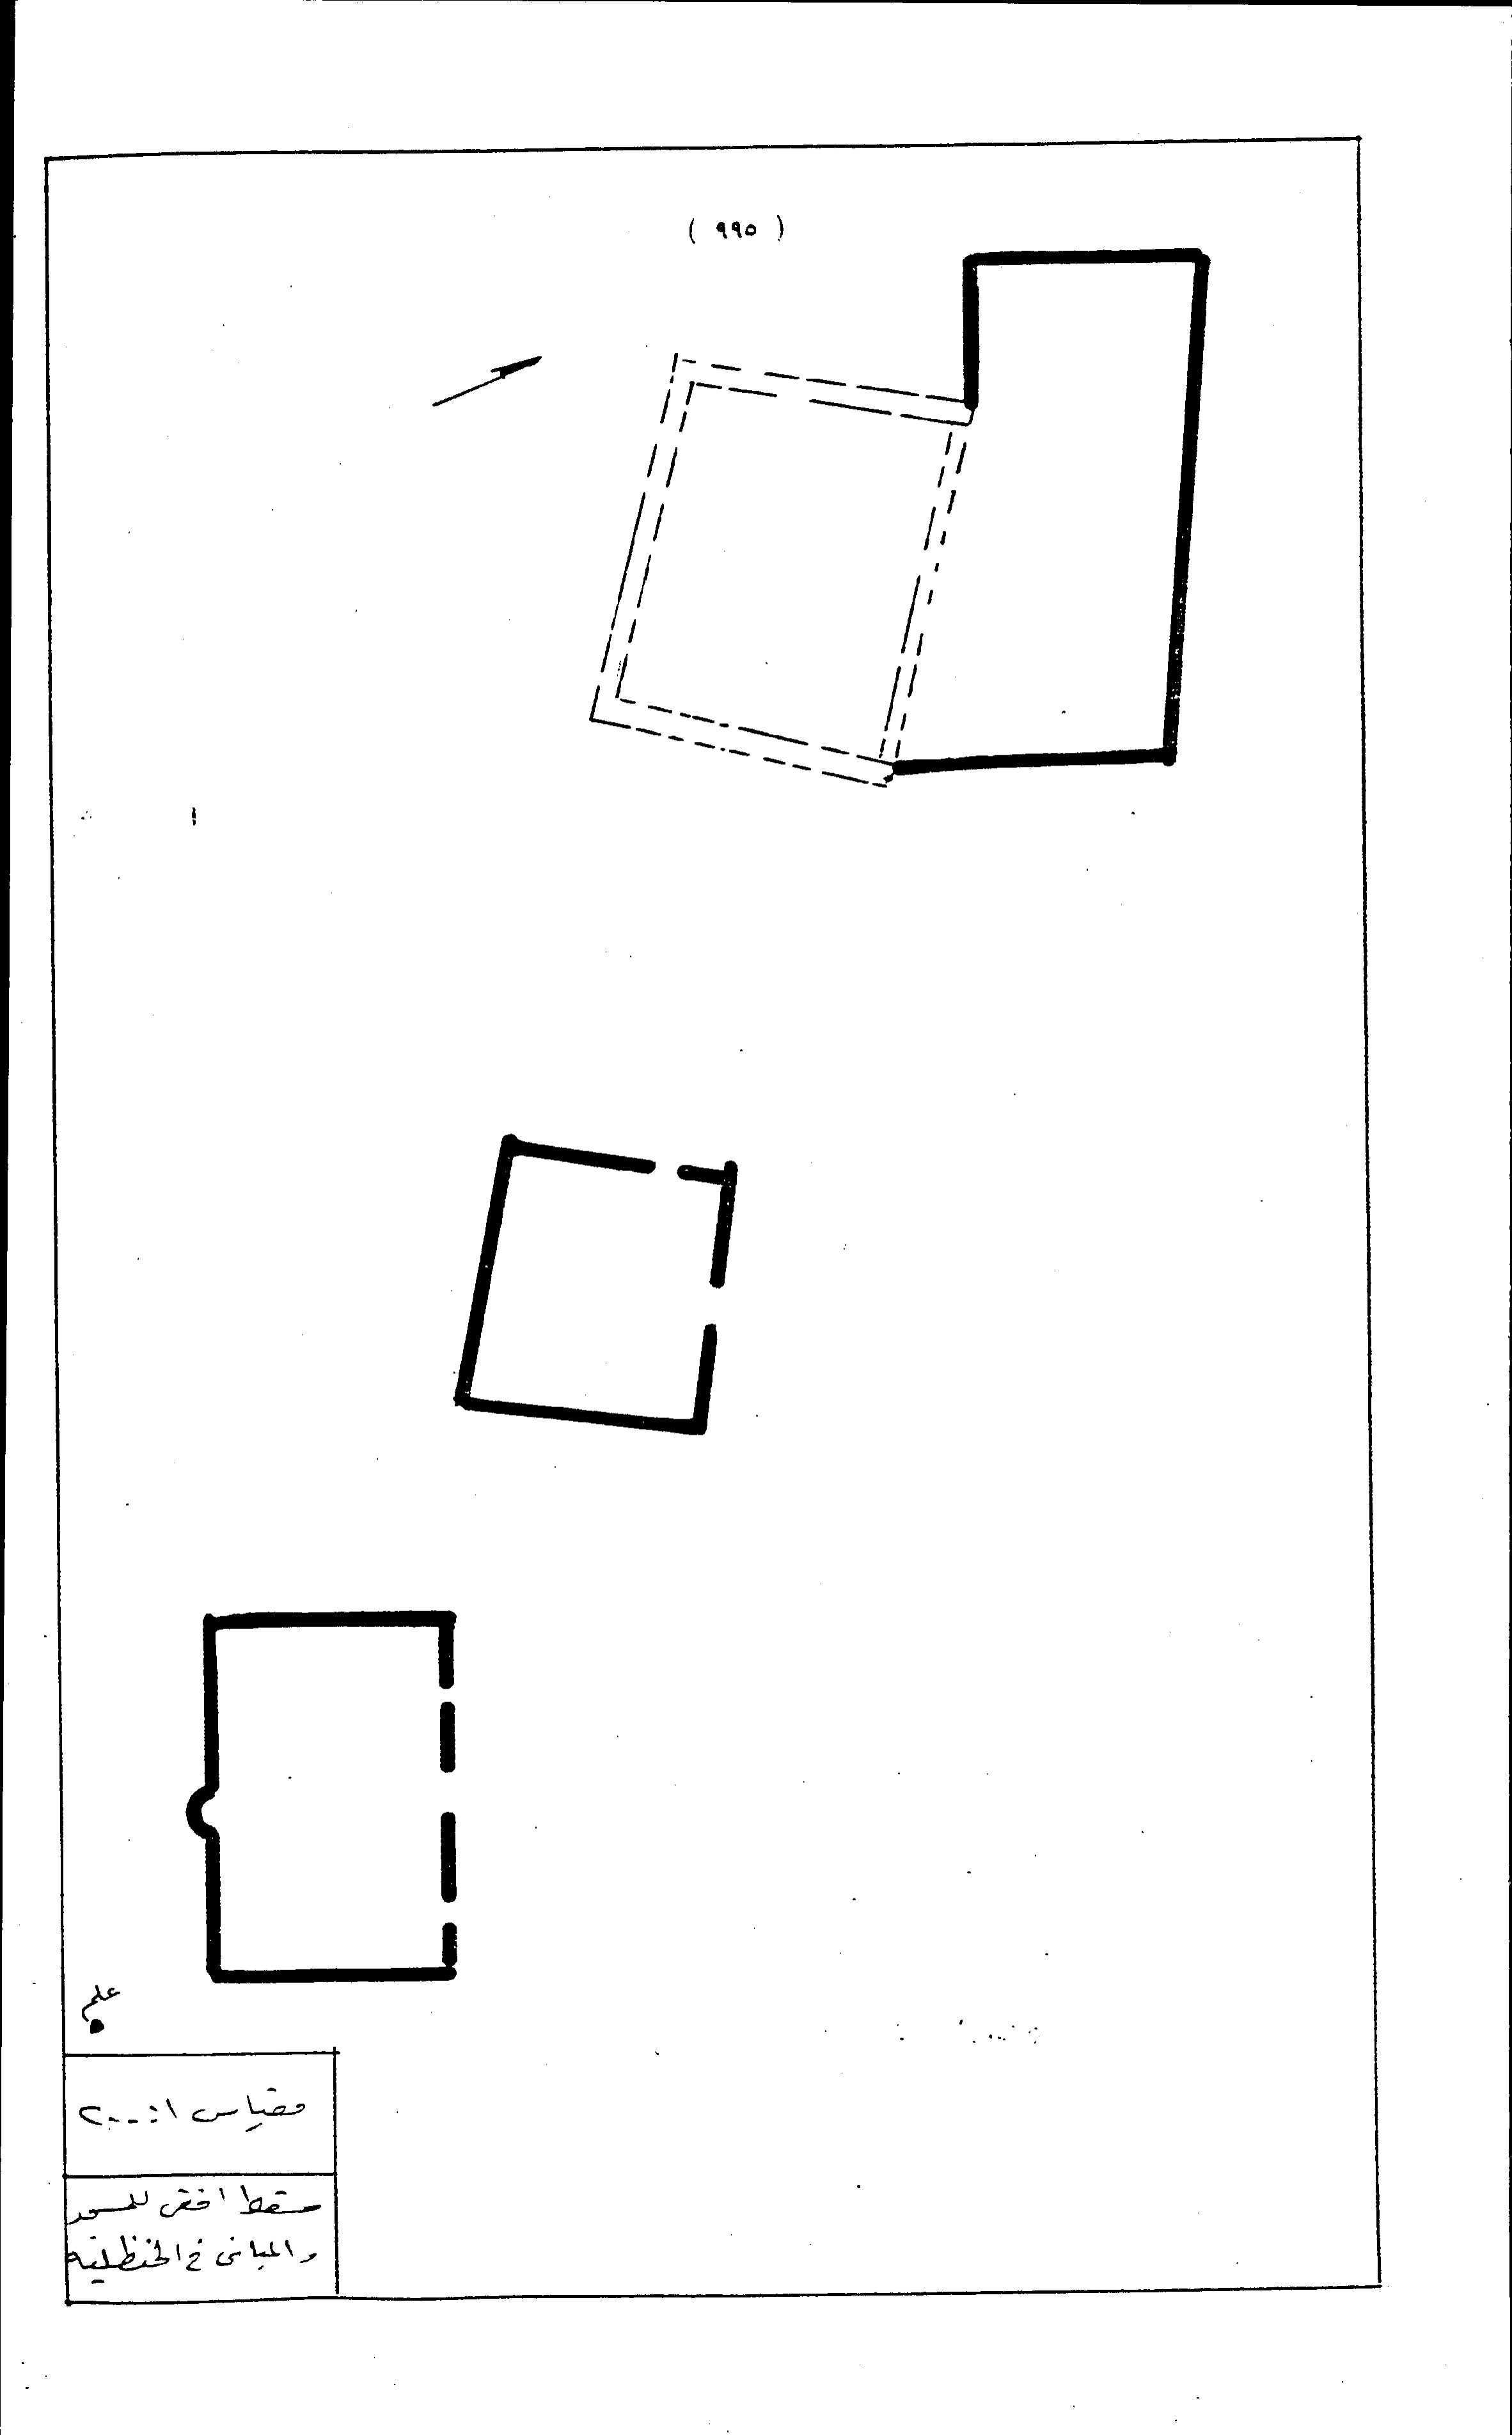 ( ٩٩٥ )
علم
مقياس ١:٢٠٠
مسقط افقى للمسجد
والمبانى فى الحنظلية